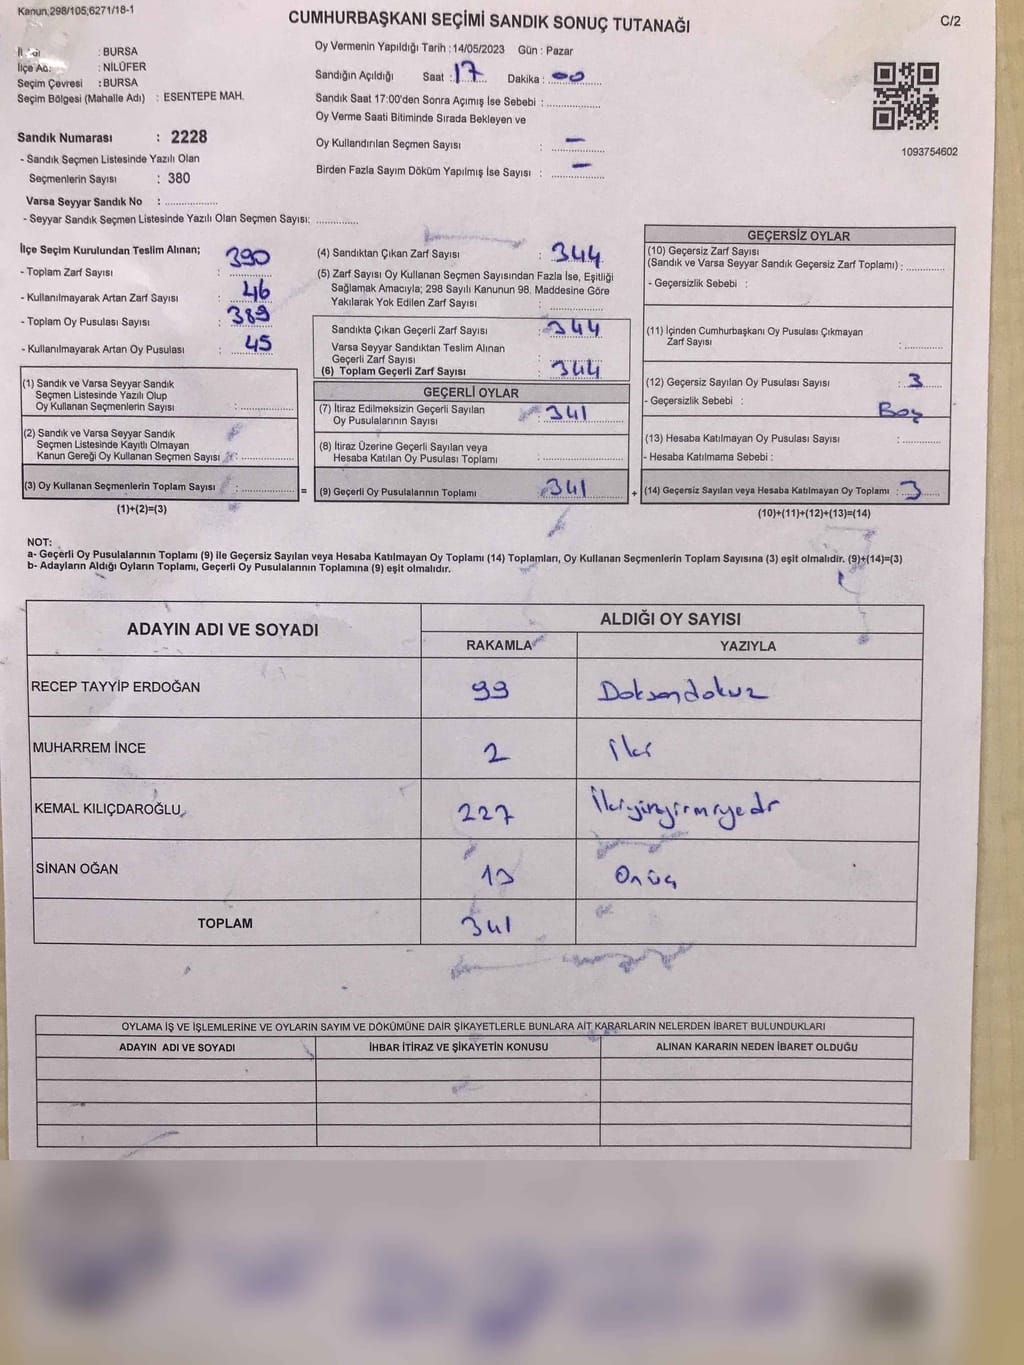 Kanun;298/105;6271/18-1
CUMHURBAŞKANI SEÇİMİ SANDIK SONUÇ TUTANAĞI
C/2
: BURSA
İlçe Adı : NİLÜFER
Seçim Çevresi : BURSA
Seçim Bölgesi (Mahalle Adı) : ESENTEPE MAH.
Sandık Numarası : 2228
- Sandık Seçmen Listesinde Yazılı Olan
Seçmenlerin Sayısı : 380
Varsa Seyyar Sandık No : ..................
- Seyyar Sandık Seçmen Listesinde Yazılı Olan Seçmen Sayısı: ..............
Oy Vermenin Yapıldığı Tarih : 14/05/2023 Gün : Pazar
Sandığın Açıldığı Saat : 17 Dakika : 00
Sandık Saat 17:00'den Sonra Açımış İse Sebebi : ..................
Oy Verme Saati Bitiminde Sırada Bekleyen ve
Oy Kullandırılan Seçmen Sayısı : —
Birden Fazla Sayım Döküm Yapılmış İse Sayısı : —
1093754602
İlçe Seçim Kurulundan Teslim Alınan;
- Toplam Zarf Sayısı : 390
- Kullanılmayarak Artan Zarf Sayısı : 46
- Toplam Oy Pusulası Sayısı : 389
- Kullanılmayarak Artan Oy Pusulası : 45
(1) Sandık ve Varsa Seyyar Sandık
Seçmen Listesinde Yazılı Olup
Oy Kullanan Seçmenlerin Sayısı : ..................
(2) Sandık ve Varsa Seyyar Sandık
Seçmen Listesinde Kayıtlı Olmayan
Kanun Gereği Oy Kullanan Seçmen Sayısı : ..................
(3) Oy Kullanan Seçmenlerin Toplam Sayısı : .................. =
(1)+(2)=(3)
(4) Sandıktan Çıkan Zarf Sayısı : 344
(5) Zarf Sayısı Oy Kullanan Seçmen Sayısından Fazla İse, Eşitliği
Sağlamak Amacıyla; 298 Sayılı Kanunun 98. Maddesine Göre
Yakılarak Yok Edilen Zarf Sayısı : ..................
Sandıkta Çıkan Geçerli Zarf Sayısı : 344
Varsa Seyyar Sandıktan Teslim Alınan
Geçerli Zarf Sayısı : ..................
(6) Toplam Geçerli Zarf Sayısı : 344
GEÇERLİ OYLAR
(7) İtiraz Edilmeksizin Geçerli Sayılan
Oy Pusulalarının Sayısı : 341
(8) İtiraz Üzerine Geçerli Sayılan veya
Hesaba Katılan Oy Pusulası Toplamı : ..................
(9) Geçerli Oy Pusulalarının Toplamı : 341 +
GEÇERSİZ OYLAR
(10) Geçersiz Zarf Sayısı
(Sandık ve Varsa Seyyar Sandık Geçersiz Zarf Toplamı) : ..............
- Geçersizlik Sebebi :
(11) İçinden Cumhurbaşkanı Oy Pusulası Çıkmayan
Zarf Sayısı : ..............
(12) Geçersiz Sayılan Oy Pusulası Sayısı : 3
- Geçersizlik Sebebi : Boş
(13) Hesaba Katılmayan Oy Pusulası Sayısı : ..............
- Hesaba Katılmama Sebebi :
(14) Geçersiz Sayılan veya Hesaba Katılmayan Oy Toplamı : 3
(10)+(11)+(12)+(13)=(14)
NOT:
a- Geçerli Oy Pusulalarının Toplamı (9) ile Geçersiz Sayılan veya Hesaba Katılmayan Oy Toplamı (14) Toplamları, Oy Kullanan Seçmenlerin Toplam Sayısına (3) eşit olmalıdır. (9)+(14)=(3)
b- Adayların Aldığı Oyların Toplamı, Geçerli Oy Pusulalarının Toplamına (9) eşit olmalıdır.
ADAYIN ADI VE SOYADI ALDIĞI OY SAYISI
RAKAMLA YAZIYLA
RECEP TAYYİP ERDOĞAN 99 Doksandokuz
MUHARREM İNCE 2 İki
KEMAL KILIÇDAROĞLU 227 İkiyüzyirmiyedi
SİNAN OĞAN 13 Onüç
TOPLAM 341
OYLAMA İŞ VE İŞLEMLERİNE VE OYLARIN SAYIM VE DÖKÜMÜNE DAİR ŞİKAYETLERLE BUNLARA AİT KARARLARIN NELERDEN İBARET BULUNDUKLARI
ADAYIN ADI VE SOYADI İHBAR İTİRAZ VE ŞİKAYETİN KONUSU ALINAN KARARIN NEDEN İBARET OLDUĞU